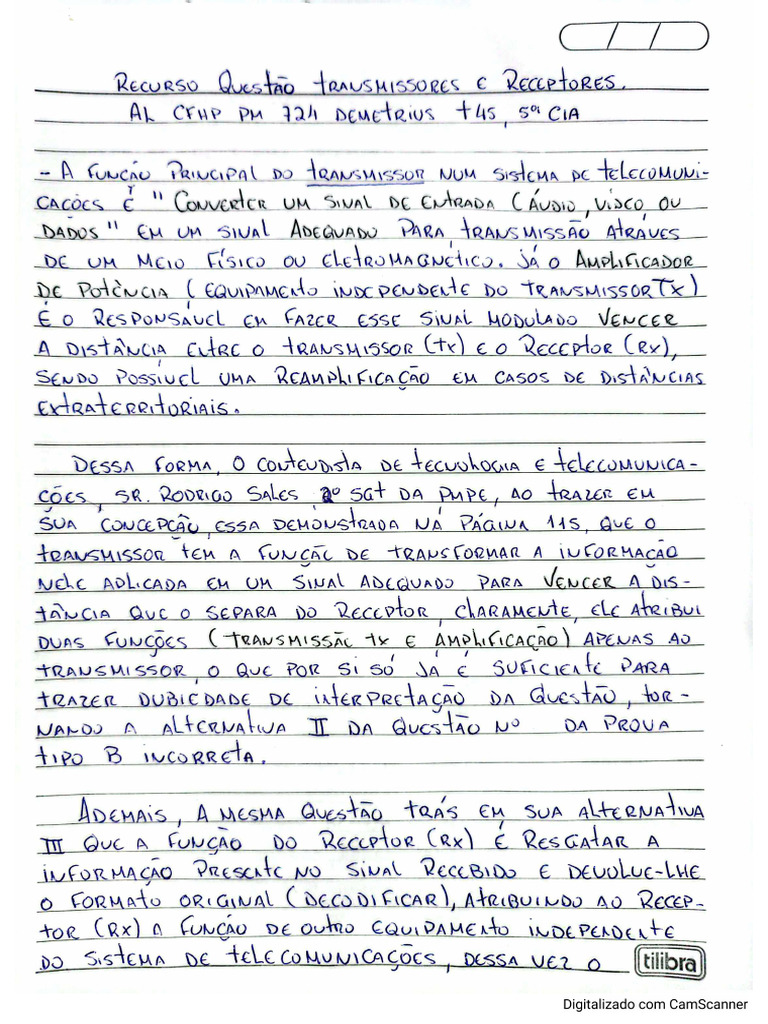 RECURSO QUESTÃO TRANSMISSORES E RECEPTORES.
AL CFHP PM 724 DEMETRIUS +45, 5ª CIA
- A FUNÇÃO PRINCIPAL DO TRANSMISSOR NUM SISTEMA DE TELECOMUNI-
CAÇÕES É "CONVERTER UM SINAL DE ENTRADA (ÁUDIO, VÍDEO OU
DADOS" EM UM SINAL ADEQUADO PARA TRANSMISSÃO ATRÁVES
DE UM MEIO FÍSICO OU ELETROMAGNÉTICO. JÁ O AMPLIFICADOR
DE POTÊNCIA (EQUIPAMENTO INDEPENDENTE DO TRANSMISSOR TX)
É O RESPONSÁVEL EM FAZER ESSE SINAL MODULADO VENCER
A DISTÂNCIA ENTRE O TRANSMISSOR (TX) E O RECEPTOR (RX),
SENDO POSSÍVEL UMA REAMPLIFICAÇÃO EM CASOS DE DISTÂNCIAS
EXTRATERRITORIAIS.
DESSA FORMA, O CONTEUDISTA DE TECNOLOGIA E TELECOMUNICA-
ÇÕES, SR. RODRIGO SALES, 2º SGT DA PMPE, AO TRAZER EM
SUA CONCEPÇÃO, ESSA DEMONSTRADA NA PÁGINA 115, QUE O
TRANSMISSOR TEM A FUNÇÃO DE TRANSFORMAR A INFORMAÇÃO
NELE APLICADA EM UM SINAL ADEQUADO PARA VENCER A DIS-
TÂNCIA QUE O SEPARA DO RECEPTOR, CLARAMENTE, ELE ATRIBUI
DUAS FUNÇÕES (TRANSMISSÃO TX E AMPLIFICAÇÃO) APENAS AO
TRANSMISSOR, O QUE POR SI SÓ JÁ É SUFICIENTE PARA
TRAZER DUBIEDADE DE INTERPRETAÇÃO DA QUESTÃO, TOR-
NANDO A ALTERNATIVA II DA QUESTÃO Nº DA PROVA
TIPO B INCORRETA.
ADEMAIS, A MESMA QUESTÃO TRÁS EM SUA ALTERNATIVA
III QUE A FUNÇÃO DO RECEPTOR (RX) É RESGATAR A
INFORMAÇÃO PRESENTE NO SINAL RECEBIDO E DEVOLVE-LHE
O FORMATO ORIGINAL (DECODIFICAR), ATRIBUINDO AO RECEP-
TOR (RX) A FUNÇÃO DE OUTRO EQUIPAMENTO INDEPENDENTE
DO SISTEMA DE TELECOMUNICAÇÕES, DESSA VEZ O
tilibra
Digitalizado com CamScanner